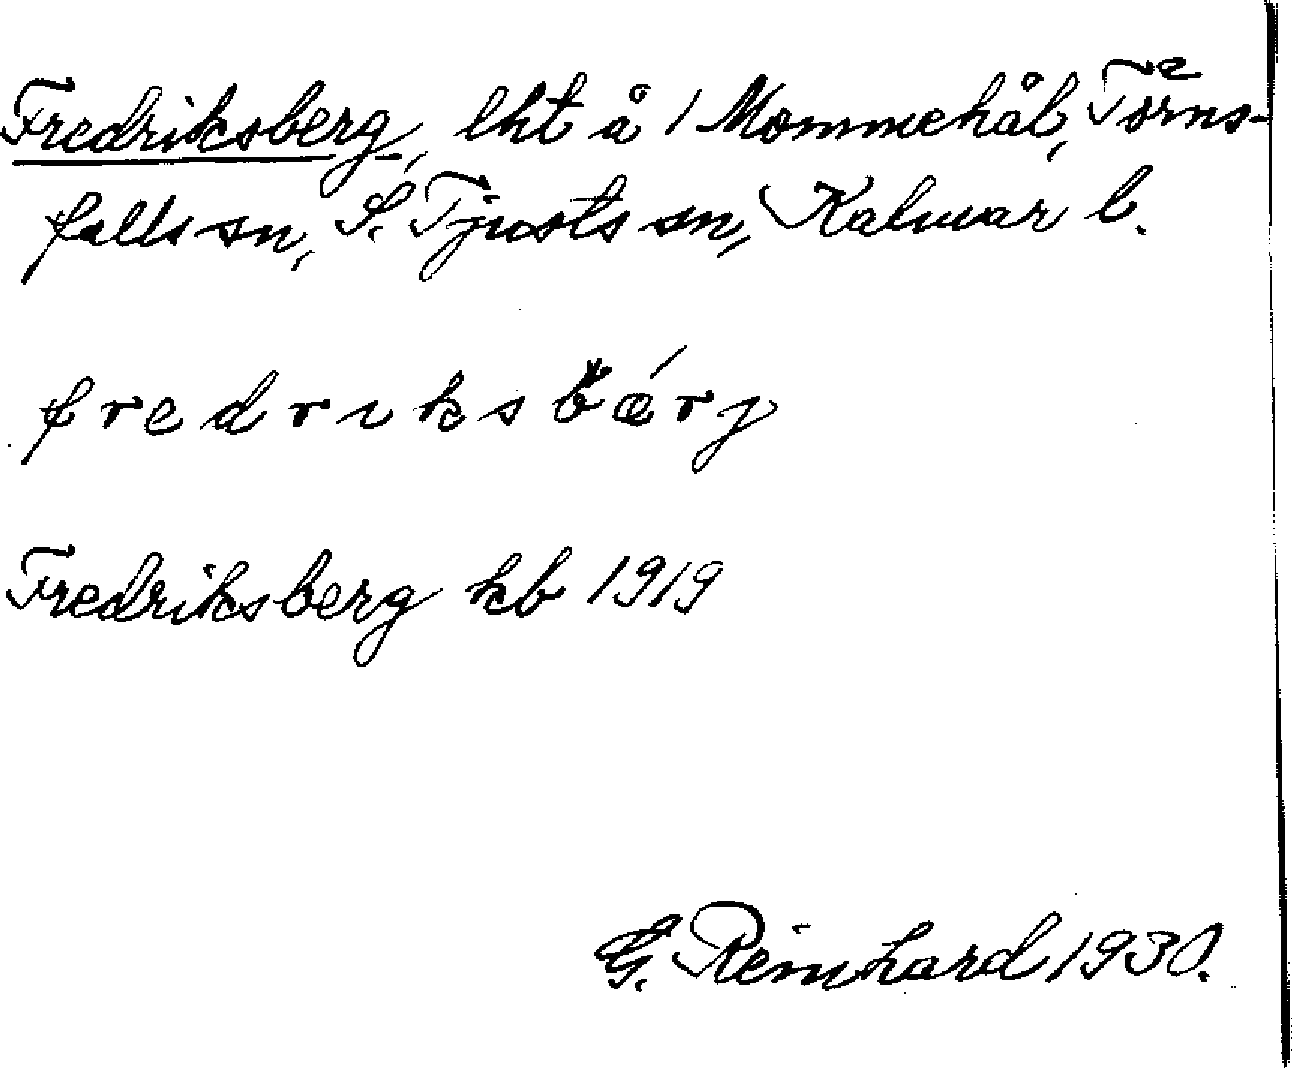 Fredriksberg, lht å 1 Mommehål, Törns-
falls sn, S. Tjusts sn, Kalmar l.
fredriksbærj
Fredriksberg kb 1919
G. Reinhard 1930.